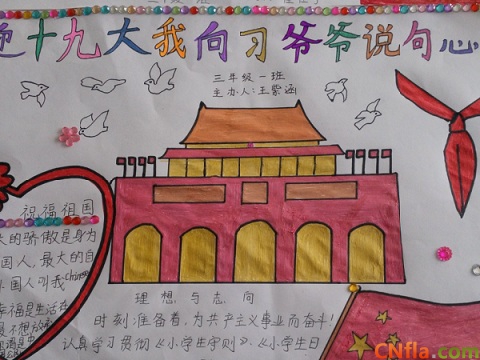 迎十九大我向习爷爷说句心
三年级一班
主办人:王紫涵
祝福祖国
大的骄傲是身为
国人,最大的自
国人引我Chinese
幸福是生活在
理想与志向
时刻准备着,为共产主义事业而奋斗!
认真学习贯彻《小学生守则》《小学生日
CNfla.com